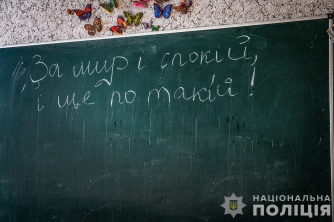 За мир і спокій,
і ще по такій!
НАЦІОНАЛЬНА
ПОЛІЦІЯ